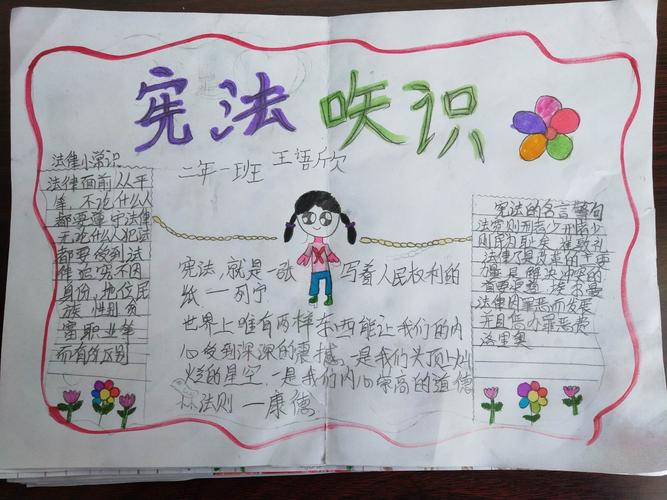 宪法咲识
二年一班 王语欣
法律小常识
法律面前人人平
等，不论什么人
都要遵守法律
无论什么人犯法
都要受到法
律追究不因
身份，地位民
族 性别 贫
富职业等
而有的区别
宪法，就是一张 写着人民权利的
纸——列宁
世界上唯有两样东西能让我们的内
心受到深深的震撼。一是我们头顶上灿
烂的星空，一是我们内心崇高的道德
法则 —康德
宪法的名言警句
法繁则刑
法律
力量是解决冲突的
首要
法律因罪恶而发展
并且惩办罪恶